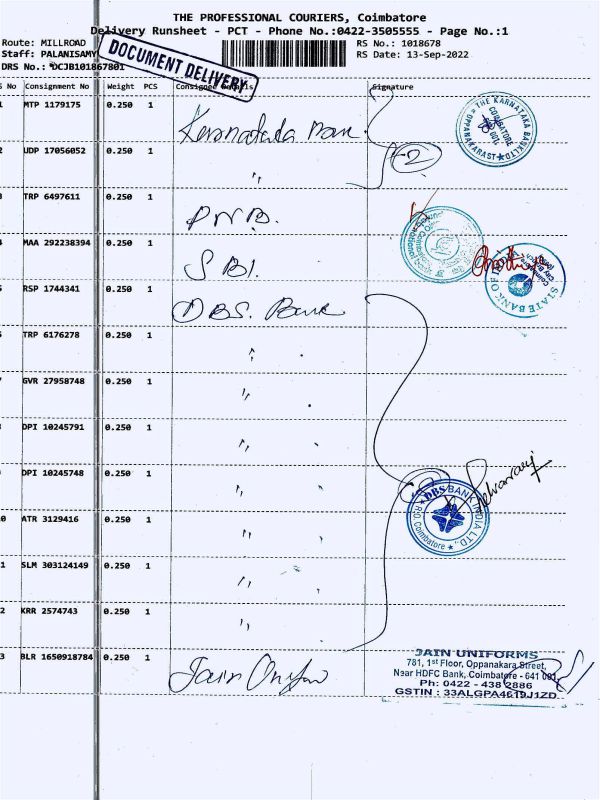 THE PROFESSIONAL COURIERS, Coimbatore
Delivery Runsheet - PCT - Phone No.:0422-3505555 - Page No.:1
Route: MILLROAD
RS No.: 1018678
Staff: PALANISAMY
RS Date: 13-Sep-2022
DRS No.: DCJB101867801
DOCUMENT DELIVERY
S No Consignment No Weight PCS Consignee Details Signature
1 MTP 1179175 0.250 1 Karnataka Bank
THE KARNATAKA BANK LTD
COIMBATORE
OPPANAKARAST
2 UDP 17056052 0.250 1 ,, 2
3 TRP 6497611 0.250 1 PNB.
4 MAA 292238394 0.250 1 SBI.
STATE BANK OF INDIA
Coimbatore
City Branch
5 RSP 1744341 0.250 1 DBS. Bank
6 TRP 6176278 0.250 1 ,,
7 GVR 27958748 0.250 1 ,,
8 DPI 10245791 0.250 1 ,,
9 DPI 10245748 0.250 1 ,,
DBS BANK INDIA LTD.,
R.O. Coimbatore
10 ATR 3129416 0.250 1 ,,
11 SLM 303124149 0.250 1 ,,
12 KRR 2574743 0.250 1 ,,
13 BLR 1650918784 0.250 1 Jain Unifor
JAIN UNIFORMS
781, 1st Floor, Oppanakara Street,
Near HDFC Bank, Coimbatore - 641 001.
Ph: 0422 - 438 2886
GSTIN : 33ALGPA4619J1ZD